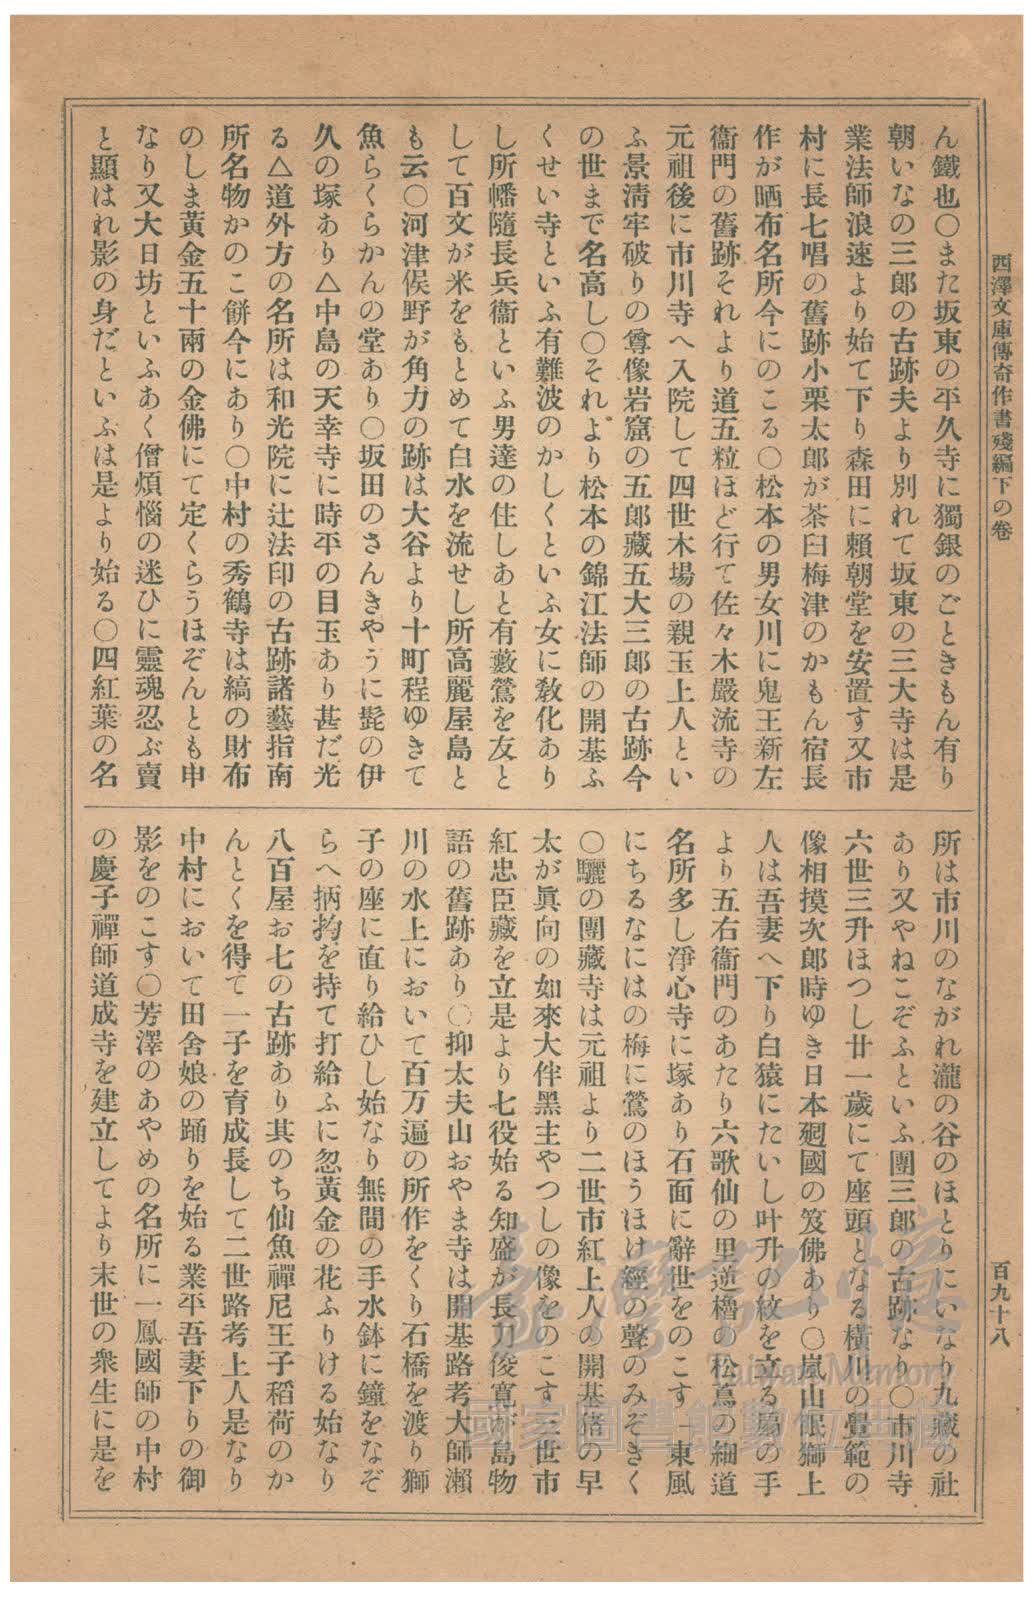 西澤文庫傳奇作書殘編下の卷
百九十八
ん鐵也〇また坂東の平久寺に獨銀のごときもん有り
朝いなの三郎の古跡夫より別れて坂東の三大寺は是
業法師浪速より始て下り森田に賴朝堂を安置す又市
村に長七唱の舊跡小栗太郎が茶臼梅津のかもん宿長
作が晒布名所今にのこる〇松本の男女川に鬼王新左
衞門の舊跡それより道五粒ほど行て佐々木嚴流寺の
元祖後に市川寺へ入院して四世木場の親玉上人とい
ふ景淸牢破りの尊像岩窟の五郎藏五大三郎の古跡今
の世まで名高し〇それより松本の錦江法師の開基ふ
くせい寺といふ有難波のかしくといふ女に敎化あり
し所幡隨長兵衞といふ男達の住しあと有藪鶯を友と
して百文が米をもとめて白水を流せし所高麗屋島と
も云〇河津俣野が角力の跡は大谷より十町程ゆきて
魚らくらかんの堂あり〇坂田のさんきやうに髭の伊
久の塚あり△中島の天幸寺に時平の目玉あり甚だ光
る△道外方の名所は和光院に辻法印の古跡諸藝指南
所名物かのこ餅今にあり〇中村の秀鶴寺は縞の財布
のしま黃金五十兩の金佛にて定くらうほぞんとも申
なり又大日坊といふあく僧煩惱の迷ひに靈魂忍ぶ賣
と顯はれ影の身だといふは是より始る〇四紅葉の名
所は市川のながれ瀧の谷のほとりにいなり九藏の社
あり又やねこぞふといふ團三郎の古跡なり〇市川寺
六世三升ほつし廿一歲にて座頭となる橫川の覺範の
像相摸次郎時ゆき日本廻國の笈佛あり〇嵐山眠獅上
人は吾妻へ下り白猿にたいし叶升の紋を立る扇の手
より五右衞門のあたり六歌仙の里逆櫓の松蔦の細道
名所多し淨心寺に塚あり石面に辭世をのこす　東風
にちるなにはの梅に鶯のほうほけ經の聲のみぞきく
〇驪の團藏寺は元祖より二世市紅上人の開基猪の早
太が眞向の如來大伴黑主やつしの像をのこす三世市
紅忠臣藏を立是より七役始る知盛が長刀俊寬が島物
語の舊跡あり〇抑太夫山おやま寺は開基路考大師瀨
川の水上において百万遍の所作をくり石橋を渡り獅
子の座に直り給ひし始なり無間の手水鉢に鐘をなぞ
らへ柄杓を持て打給ふに忽黃金の花ふりける始なり
八百屋お七の古跡あり其のち仙魚禪尼王子稻荷のか
んとくを得て一子を育成長して二世路考上人是なり
中村において田舍娘の踊りを始る業平吾妻下りの御
影をのこす〇芳澤のあやめの名所に一鳳國師の中村
の慶子禪師道成寺を建立してより末世の衆生に是を
臺灣記憶
Taiwan Memory
國家圖書館數位典藏